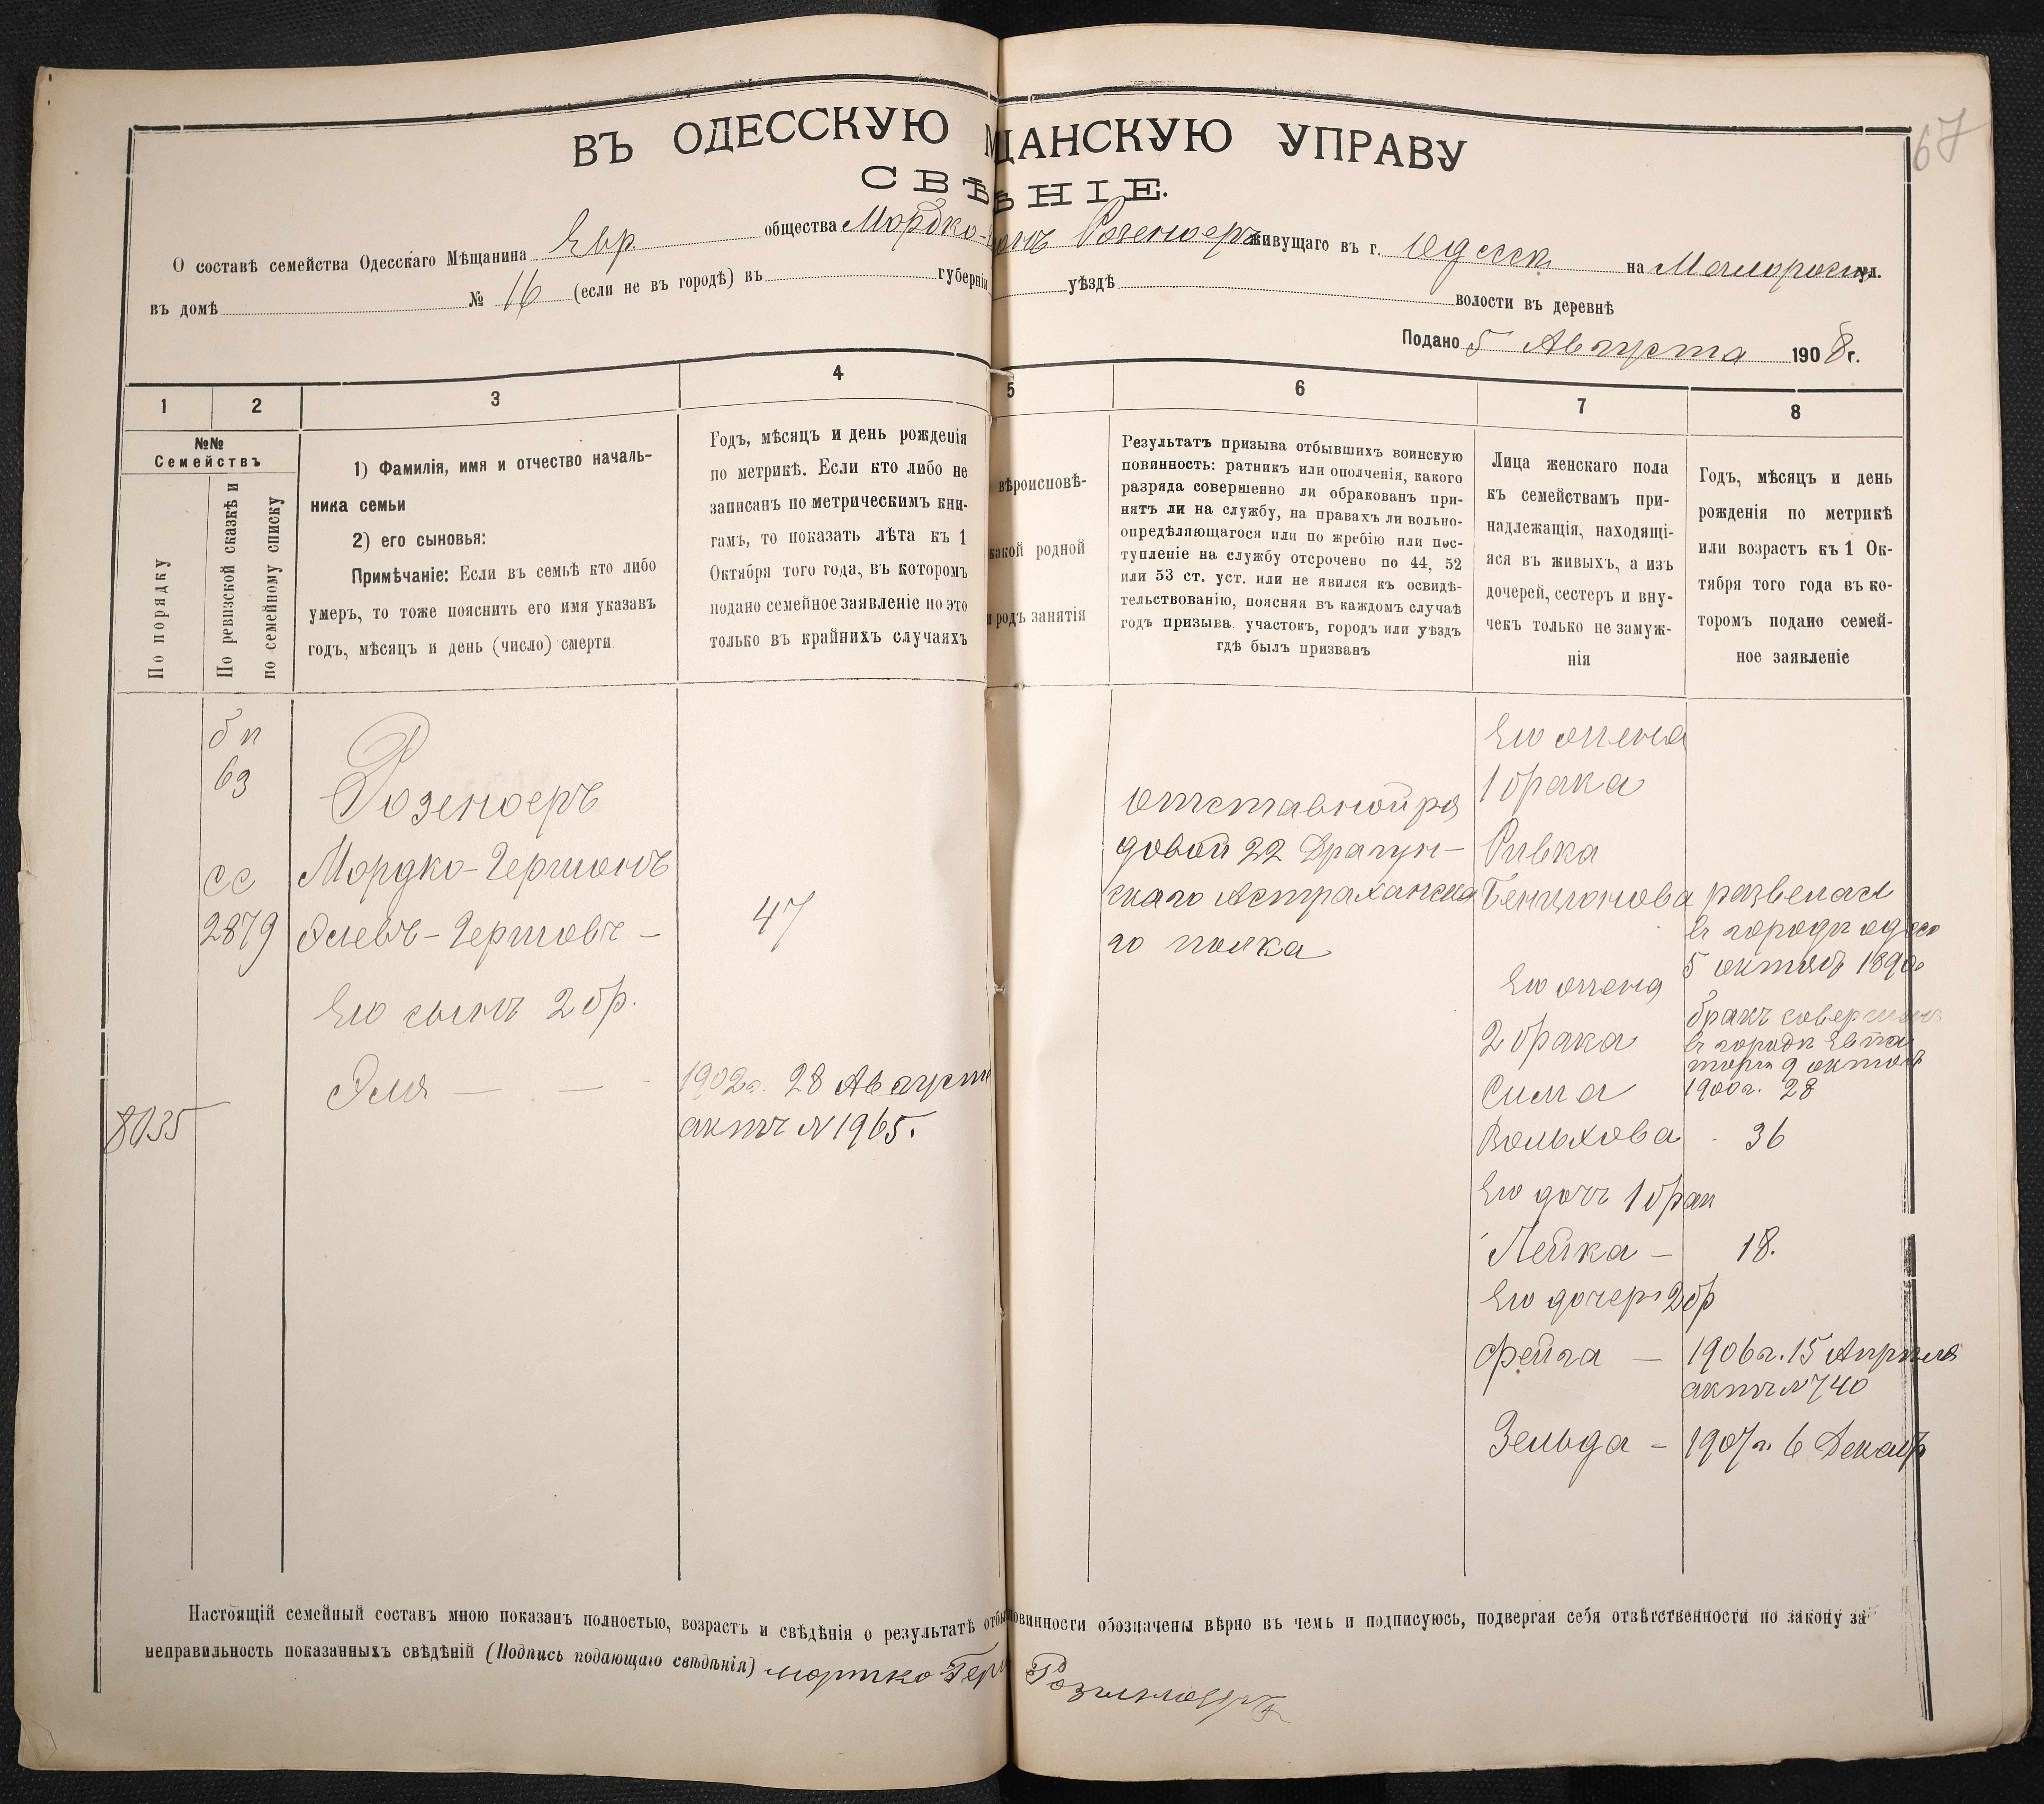 67
ВЪ ОДЕССКУЮ М ЩАНСКУЮ УПРАВУ
СВѢ НІЕ.
О составѣ семейства Одесскаго Мѣщанина Евр. общества Мордко- Розеноеръ живущаго въ г. Одессѣ на Малоросс. ул.
въ домѣ № 16 (если не въ городѣ) въ губерніи уѣздѣ волости въ деревнѣ
Подано 5 Августа 1908 г.
1 2 3 4 5 6 7 8
№№
Семействъ
По порядку
По ревизской сказкѣ и
по семейному списку
1) Фамилія, имя и отчество началь-
ника семьи
2) его сыновья:
Примѣчаніе: Если въ семьѣ кто либо
умеръ, то тоже пояснить его имя указавъ
годъ, мѣсяцъ и день (число) смерти
Годъ, мѣсяцъ и день рожденія
по метрикѣ. Если кто либо не
записанъ по метрическимъ кни-
гамъ, то показать лѣта къ 1
Октября того года, въ которомъ
подано семейное заявленіе но это
только въ крайнихъ случаяхъ
вѣроисповѣ-
какой родной
и родъ занятія
Результатъ призыва отбывшихъ воинскую
повинность: ратникъ или ополченія, какого
разряда совершенно ли обракованъ при-
нятъ ли на службу, на правахъ ли вольно-
опредѣляющагося или по жребію или пос-
тупленіе на службу отсрочено по 44, 52
или 53 ст. уст. или не явился къ освидѣ-
тельствованію, поясняя въ каждомъ случаѣ
годъ призыва. участокъ, городъ или уѣздъ
гдѣ былъ призванъ
Лица женскаго пола
къ семействамъ при-
надлежащія, находящі-
яся въ живыхъ, а изъ
дочерей, сестеръ и вну-
чекъ только не замуж-
нія
Годъ, мѣсяцъ и день
рожденія по метрикѣ
или возрастъ къ 1 Ок-
тября того года въ ко-
торомъ подано семей-
ное заявленіе
бп
63
сс
2879
8035
Розеноеръ
Мордко-Гершонъ
Элевъ-Гершовъ –
Его сынъ 2 бр.
Эля — —
47
1902 г. 28 Августа
актъ N 1965.
Отставной ря
довой 22 Драгун-
скаго Астраханска
го полка
Его жена
1 брака
Ривка
Бенціонова развелась
въ городѣ Одес
5 октяб 1890
Его жена
2 брака
бракъ совершонъ
въ городѣ Евпа
торіи 9 октяб
1900 г. 28
Сима
Вольхова 36
Его дочь 1 брак
Лейка – 18.
Его дочери 2 бр
Фейга — 1906 г. 15 Апрѣля
актъ N 740
Зельда – 1907 г. 6 Декабр
Настоящій семейный составъ мною показанъ полностью, возрастъ и свѣдѣнія о результатѣ отбы повинности обозначены вѣрно въ чемъ и подписуюсь, подвергая себя отвѣтственности по закону за
неправильность показанныхъ свѣдѣній (Подпись подающаго свѣдѣнія) мортко Герш Розеноеръ